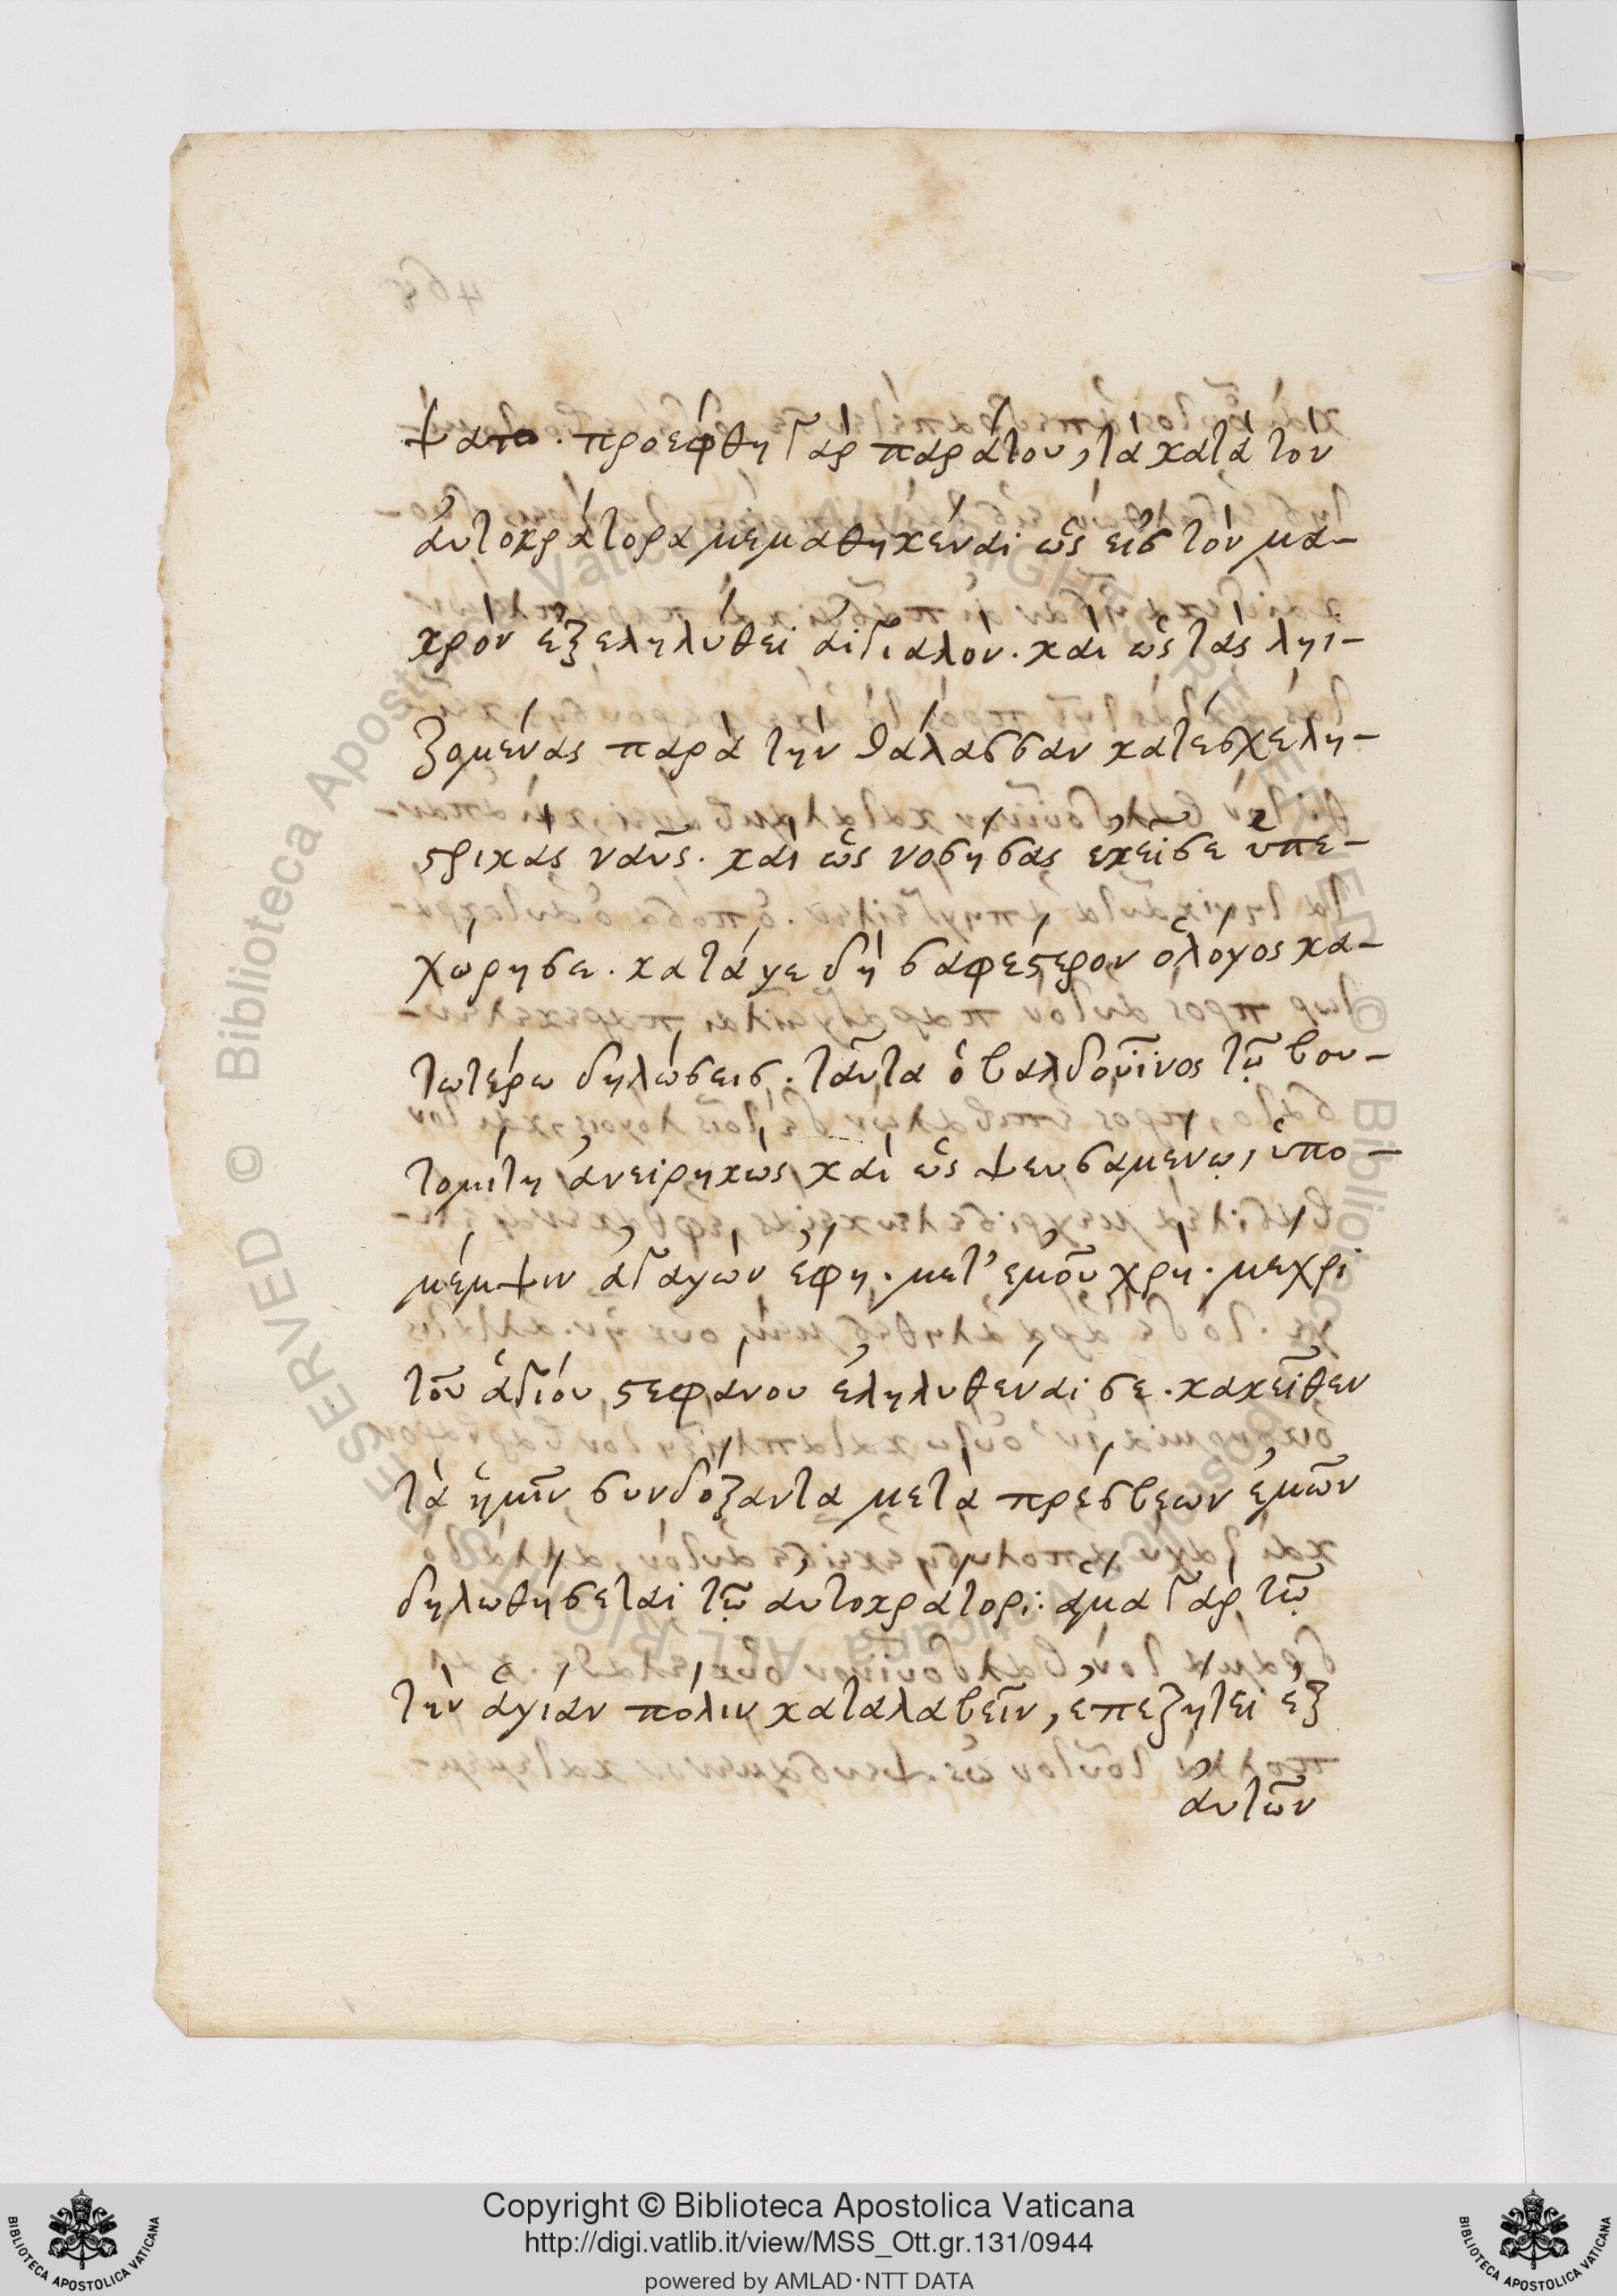 ψατο. προέφθη γὰρ παρά του, τὰ κατὰ τὸν
ἀυτοκράτορα μεμαθηκέναι ὡς εἰς τὸν μα-
κρὸν ἐξεληλύθει αἰγιαλὸν. καὶ ὡς τὰς ληϊ-
ζομένας παρὰ τὴν θάλασσαν κατέσχε λη-
στρικὰς ναῦς. καὶ ὡς νοσήσας ἐκεῖσε ὑπε-
χώρησε. κατά γε δὴ σαφέστερον ὁ λόγος κα-
τωτέρω δηλώσεις. ταῦτα ὁ βαλδουῖνος τῷ βου-
τομίτῃ ἀνειρηκὼς καὶ ὡς ψευσαμένῳ, ὑπο-
μέμψιν ἀγαγὼν ἔφη. μετ' ἐμοῦ χρὴ. μέχρι
τοῦ ἁγίου στεφάνου ἐληλυθέναι σε. κακεῖθεν
τὰ ἡμῖν συνδόξαντα μετὰ πρέσβεων ἐμῶν
δηλωθήσεται τῷ ἀυτοκράτορι: ἅμα γὰρ τῷ
τὴν ἁγίαν πόλιν καταλαβεῖν, ἐπεζήτει ἐξ
ἀυτῶν
468
Copyright © Biblioteca Apostolica Vaticana
http://digi.vatlib.it/view/MSS_Ott.gr.131/0944
powered by AMLAD·NTT DATA
BIBLIOTECA APOSTOLICA VATICANA
BIBLIOTECA APOSTOLICA VATICANA